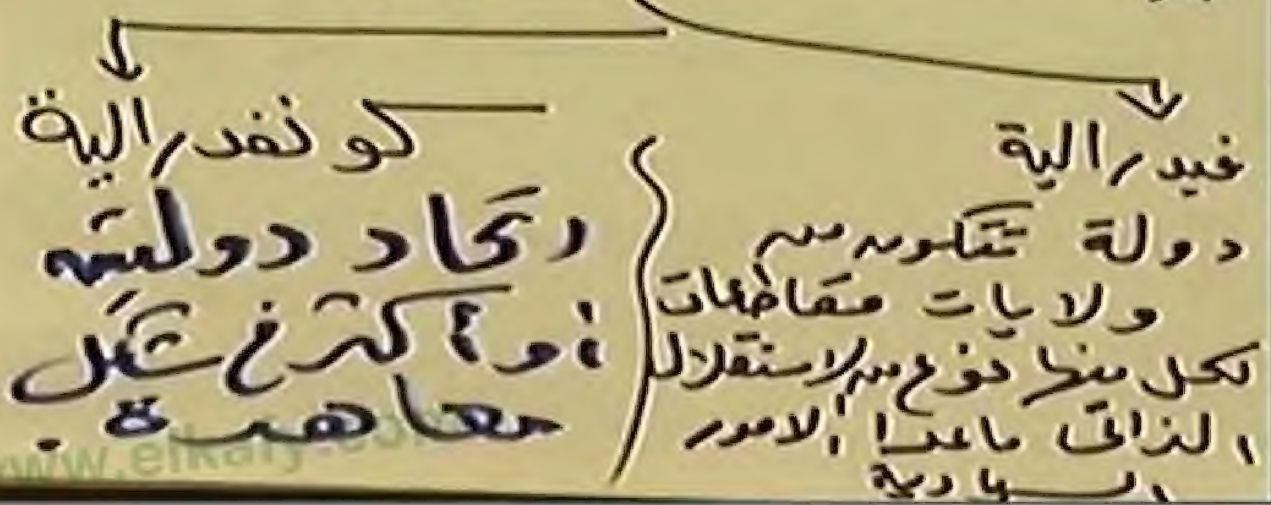 فيدرالية
دولة تتكون من
ولايات مقاطعات
لكل منها نوع من الاستقلال
الذاتي ماعدا الامور
السيادية
كونفدرالية
اتحاد دولتين
أو أكثر في شكل
معاهدة .